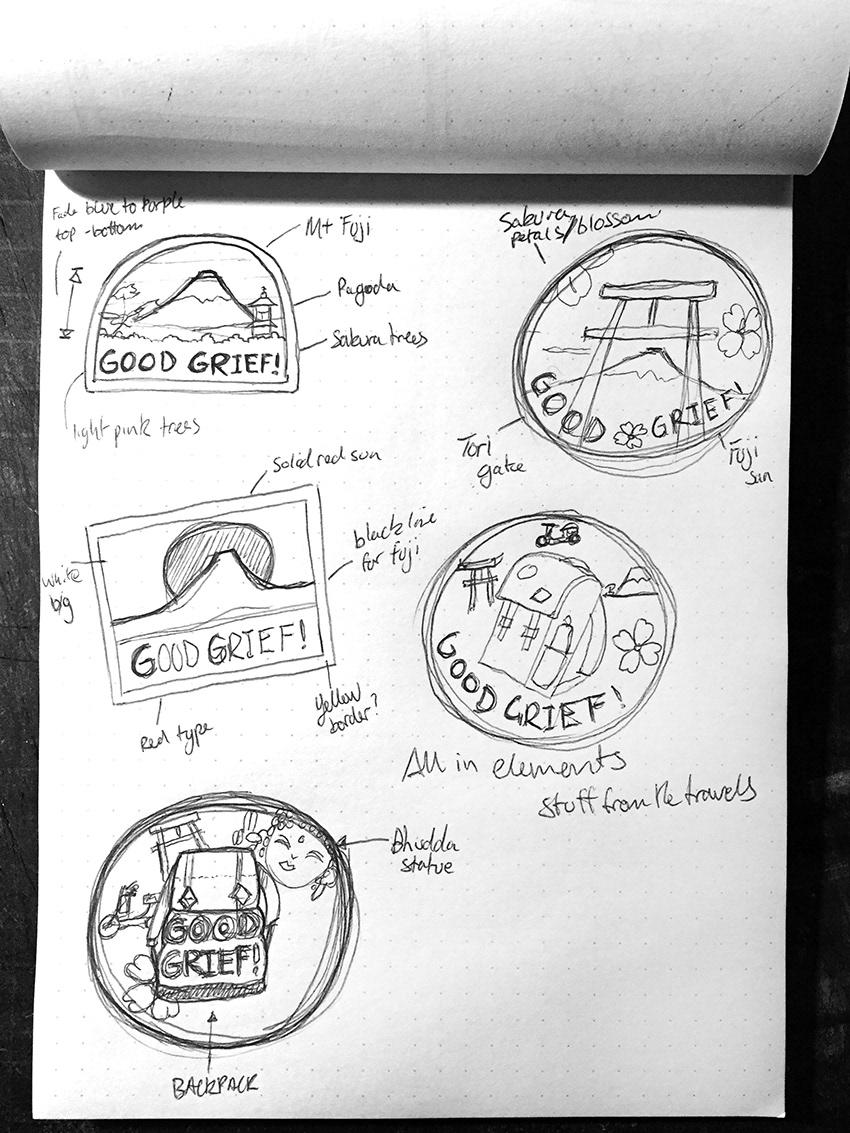 Fade blue to Purple
top - bottom
Mt Fuji
Pagoda
Sakura trees
GOOD GRIEF!
light pink trees
Sakura
petals/blossom
GOOD GRIEF!
Tori
gate
Fuji
Sun
Solid red sun
black line
for Fuji
white
b/g
GOOD GRIEF!
Red type
yellow
border?
GOOD GRIEF!
All in elements
Stuff from the travels
Bhudda
statue
GOOD
GRIEF!
BACKPACK